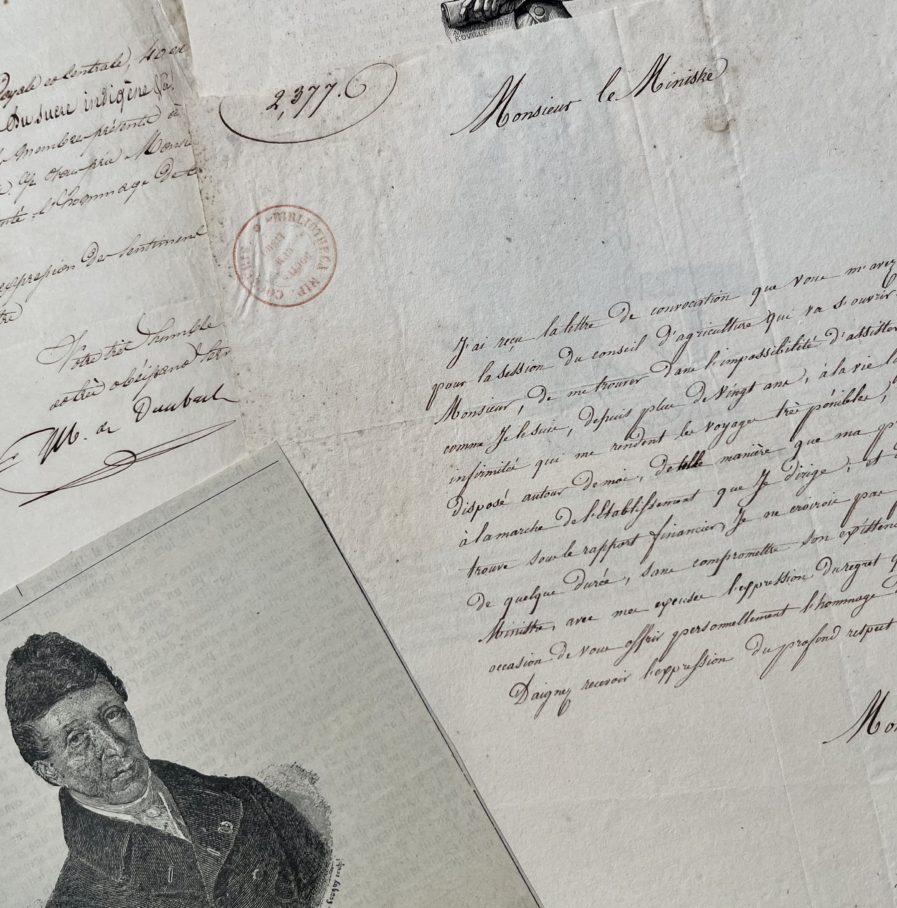 Royale et Centrale, 40 ex
Du sucre indigène
membre, présenté à
l'hommage de
expression de sentiment
Votre très humble
et très obéissant
M. de
ROVILLE
2,377.
BIBLIOTHECA
Monsieur le Ministre
J'ai reçu la lettre de convocation que vous m'avez
pour la session du conseil d'agriculture qui va s'ouvrir
Monsieur, de me trouver dans l'impossibilité d'assister
comme Je le suis, depuis plus de vingt ans, à la vie
infirmités qui me rendent les voyages très pénibles,
disposé autour de moi, de telle manière que ma
à la marche de l'Etablissement que Je dirige; et
trouve sous le rapport financier, Je ne croirois pas
de quelque durée, sans compromettre son existence
Ministre, avec mes excuses l'expression du regret
occasion de vous offrir personnellement l'hommage
Daignez recevoir l'expression du profond respect
Mon